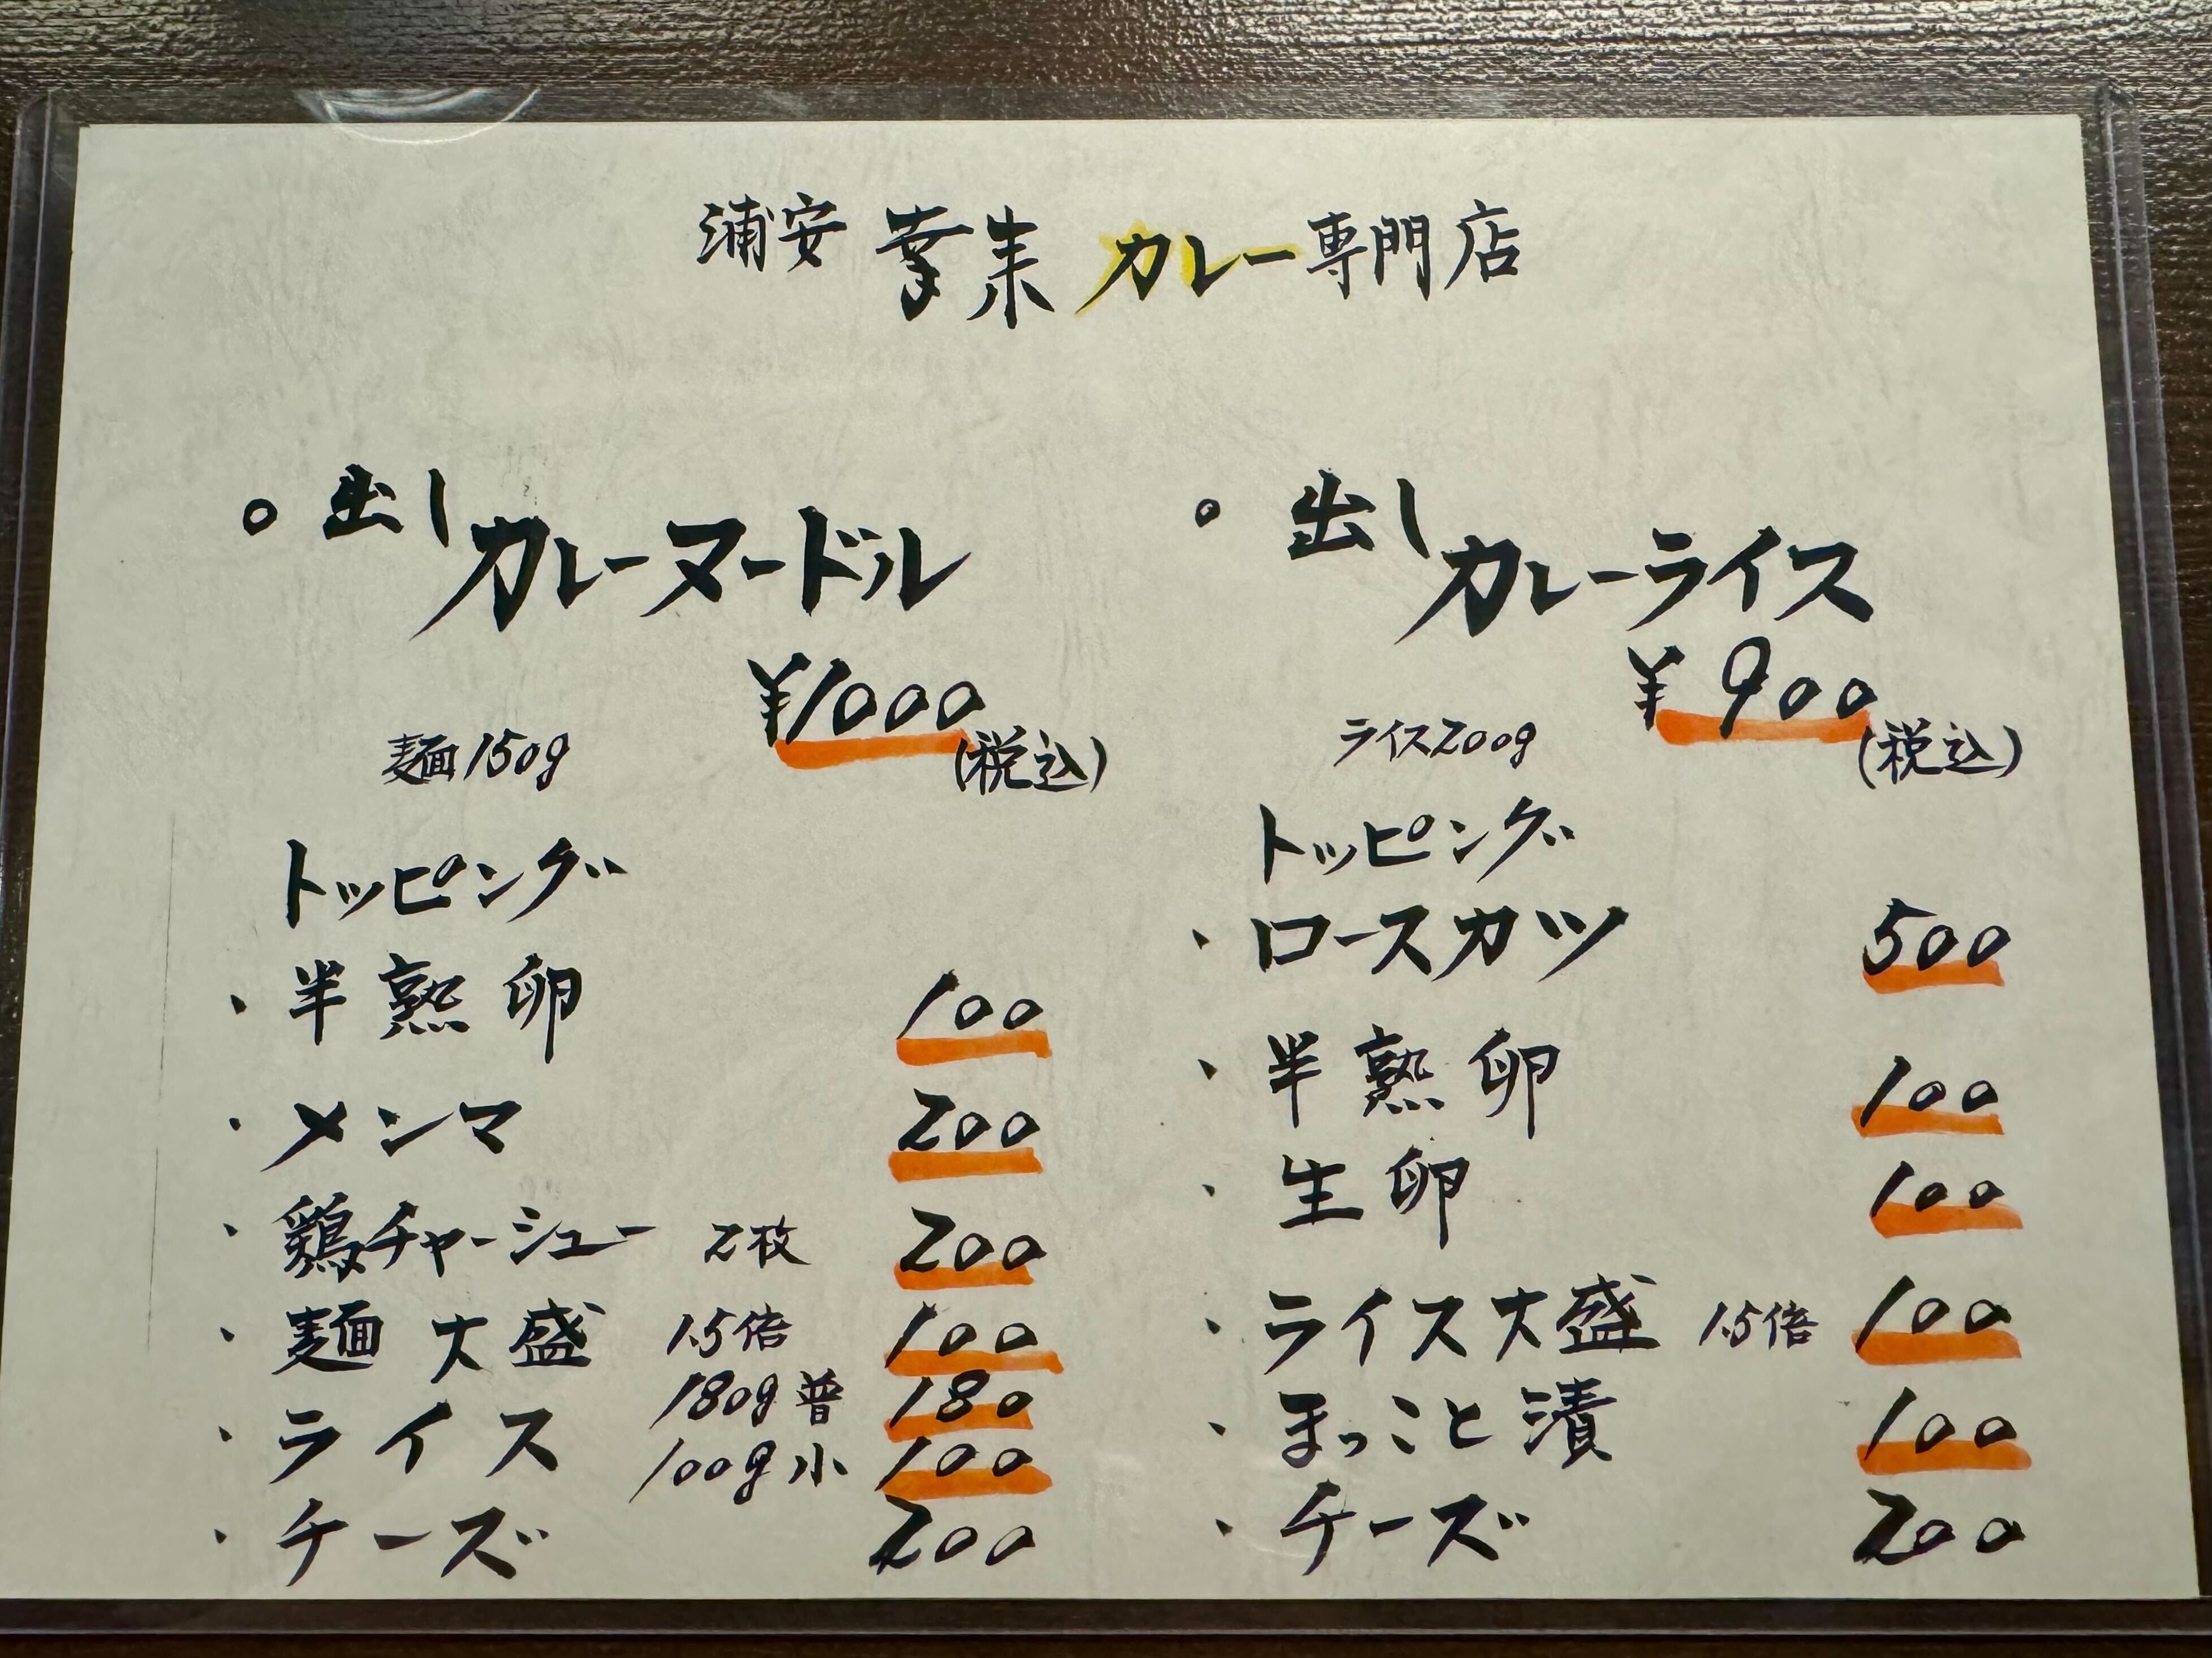 浦安 カレー専門店
。出し
カレーヌードル
¥1000
麺150g (税込)
トッピング
・半熟卵 100
・メンマ 200
・鶏チャーシュー 2枚 200
・麺大盛 1.5倍 100
180g普 180
・ライス
100g小 100
・チーズ 200
。出し
カレーライス
¥900
ライス200g (税込)
トッピング
・ロースカツ 500
・半熟卵 100
・生卵 100
・ライス大盛 1.5倍 100
・まっこと漬 100
・チーズ 200